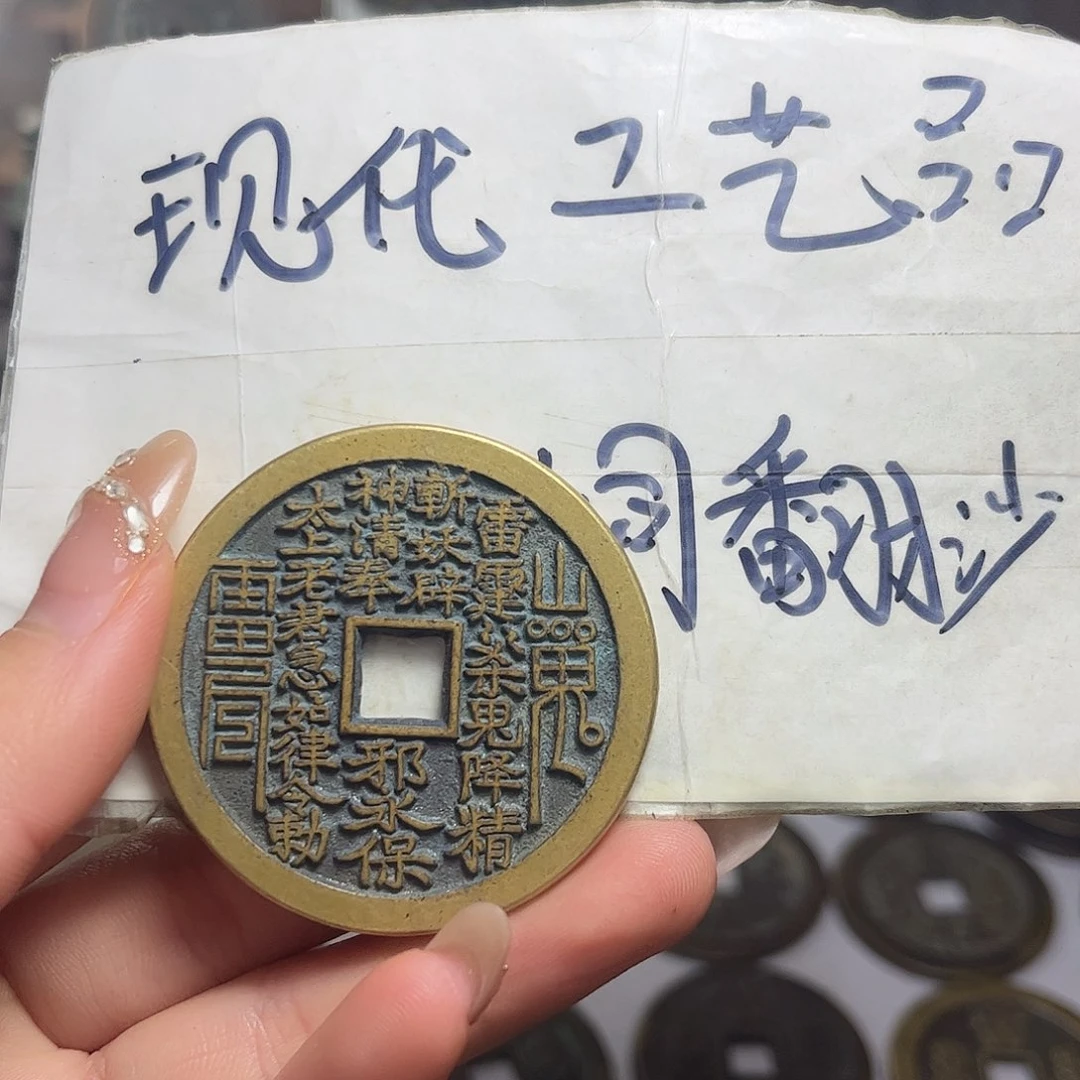 现代工艺品
铜翻沙
雷霆杀鬼降精
斬妖辟邪永保
神清奉
太上老君急如律令勅